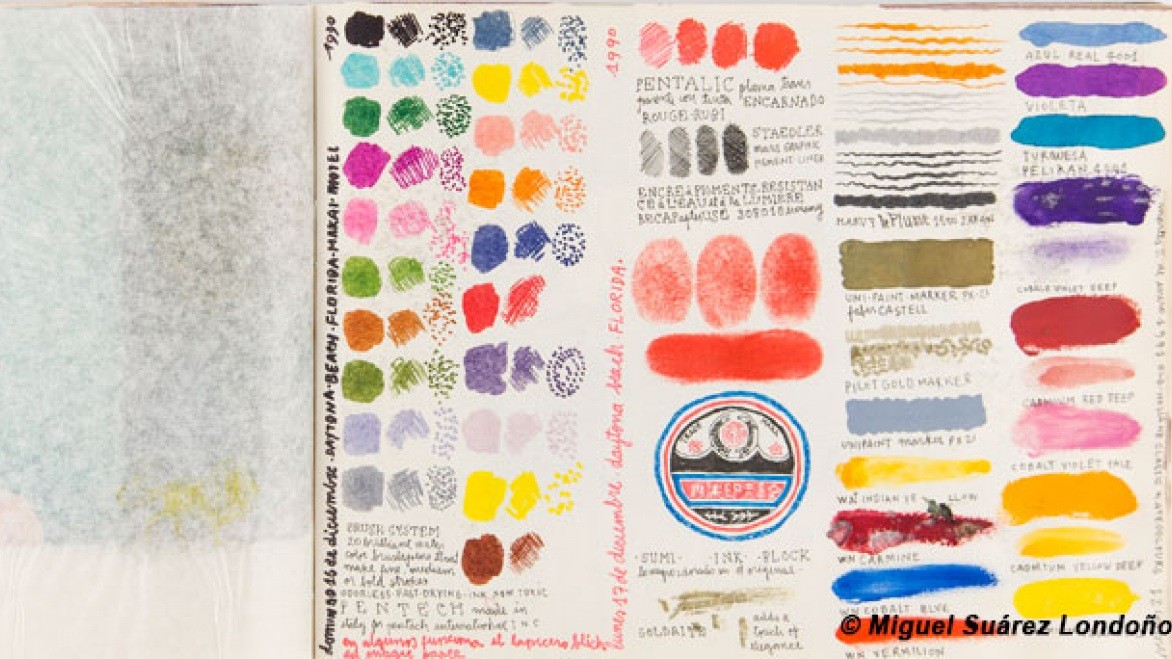 1990
DOMINGO 16 de diciembre · DAYTONA · BEACH · FLORIDA · MAKAI · MOTEL
BRUSH SYSTEM
20 brilliant water
color brushpens that
make fine, medium
or bold strokes
ODORLESS · FAST · DRYING · INK, NON TOXIC
PENTECH made in
italy for pentech international, INC
en algunos funciona el lapicero
1990
lunes 17 de diciembre daytona beach. FLORIDA.
PENTALIC pluma
con tinta ENCARNADO
ROUGE-RUBI
STAEDLER
mars GRAPHIC
PIGMENT LINER
ENCRE à PIGMENTE, RESISTAN
CE à L'EAU et à la LUMIERE
· SUMI · · INK · BLOCK
en el original ·
GOLD
adds a
touch of
elegance
MARVY le Plume
UNI·PAINT·MARKER PX·21
faber CASTELL
PILOT GOLD MARKER
UNIPAINT marker PX 21
WN INDIAN YE LLOW
WN CARMINE
WN COBALT BLUE
WN VERMILION
AZUL REAL 4001
VIOLETA
TURQUESA
PELIKAN 4001
COBALT VIOLET DEEP
CADMIUM RED DEEP
COBALT VIOLET PALE
CADMIUM YELLOW DEEP
© Miguel Suárez Londoño